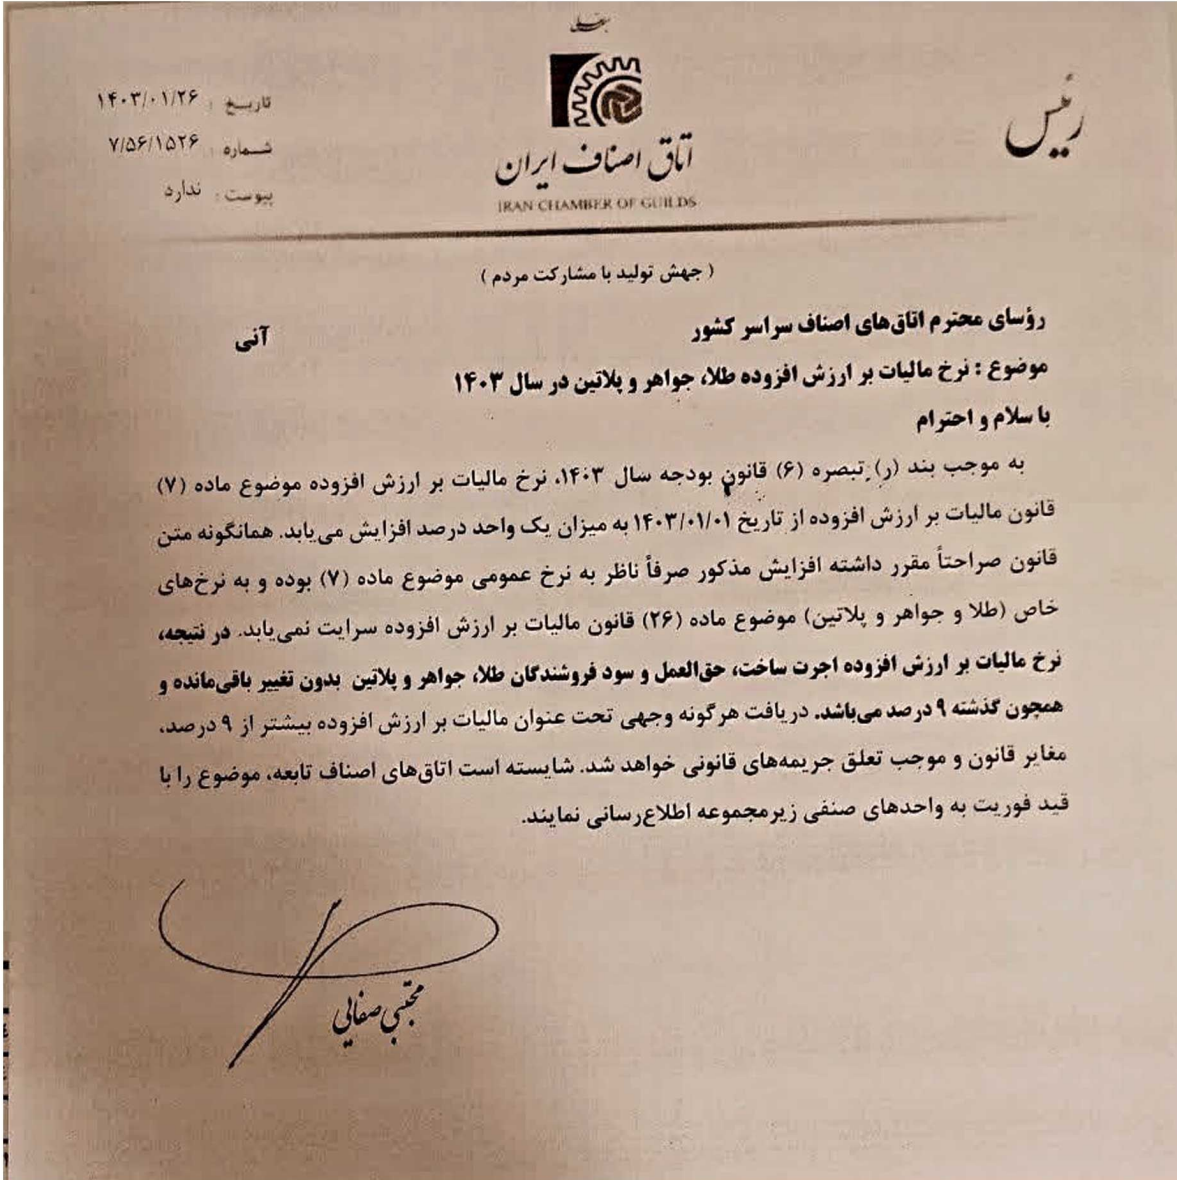 بسمه‌تعالی
رئیس
اتاق اصناف ایران
IRAN CHAMBER OF GUILDS
تاریخ : ۱۴۰۳/۰۱/۲۶
شماره : ۷/۵۶/۱۵۲۶
پیوست : ندارد
( جهش تولید با مشارکت مردم )
رؤسای محترم اتاق‌های اصناف سراسر کشور
آنی
موضوع : نرخ مالیات بر ارزش افزوده طلا، جواهر و پلاتین در سال ۱۴۰۳
با سلام و احترام
به موجب بند (ر) تبصره (۶) قانون بودجه سال ۱۴۰۳، نرخ مالیات بر ارزش افزوده موضوع ماده (۷)
قانون مالیات بر ارزش افزوده از تاریخ ۱۴۰۳/۰۱/۰۱ به میزان یک واحد درصد افزایش می‌یابد. همانگونه متن
قانون صراحتاً مقرر داشته افزایش مذکور صرفاً ناظر به نرخ عمومی موضوع ماده (۷) بوده و به نرخ‌های
خاص (طلا و جواهر و پلاتین) موضوع ماده (۲۶) قانون مالیات بر ارزش افزوده سرایت نمی‌یابد. در نتیجه،
نرخ مالیات بر ارزش افزوده اجرت ساخت، حق‌العمل و سود فروشندگان طلا، جواهر و پلاتین بدون تغییر باقی‌مانده و
همچون گذشته ۹ درصد می‌باشد. دریافت هرگونه وجهی تحت عنوان مالیات بر ارزش افزوده بیشتر از ۹ درصد،
مغایر قانون و موجب تعلق جریمه‌های قانونی خواهد شد. شایسته است اتاق‌های اصناف تابعه، موضوع را با
قید فوریت به واحدهای صنفی زیرمجموعه اطلاع‌رسانی نمایند.
مجتبی صفایی